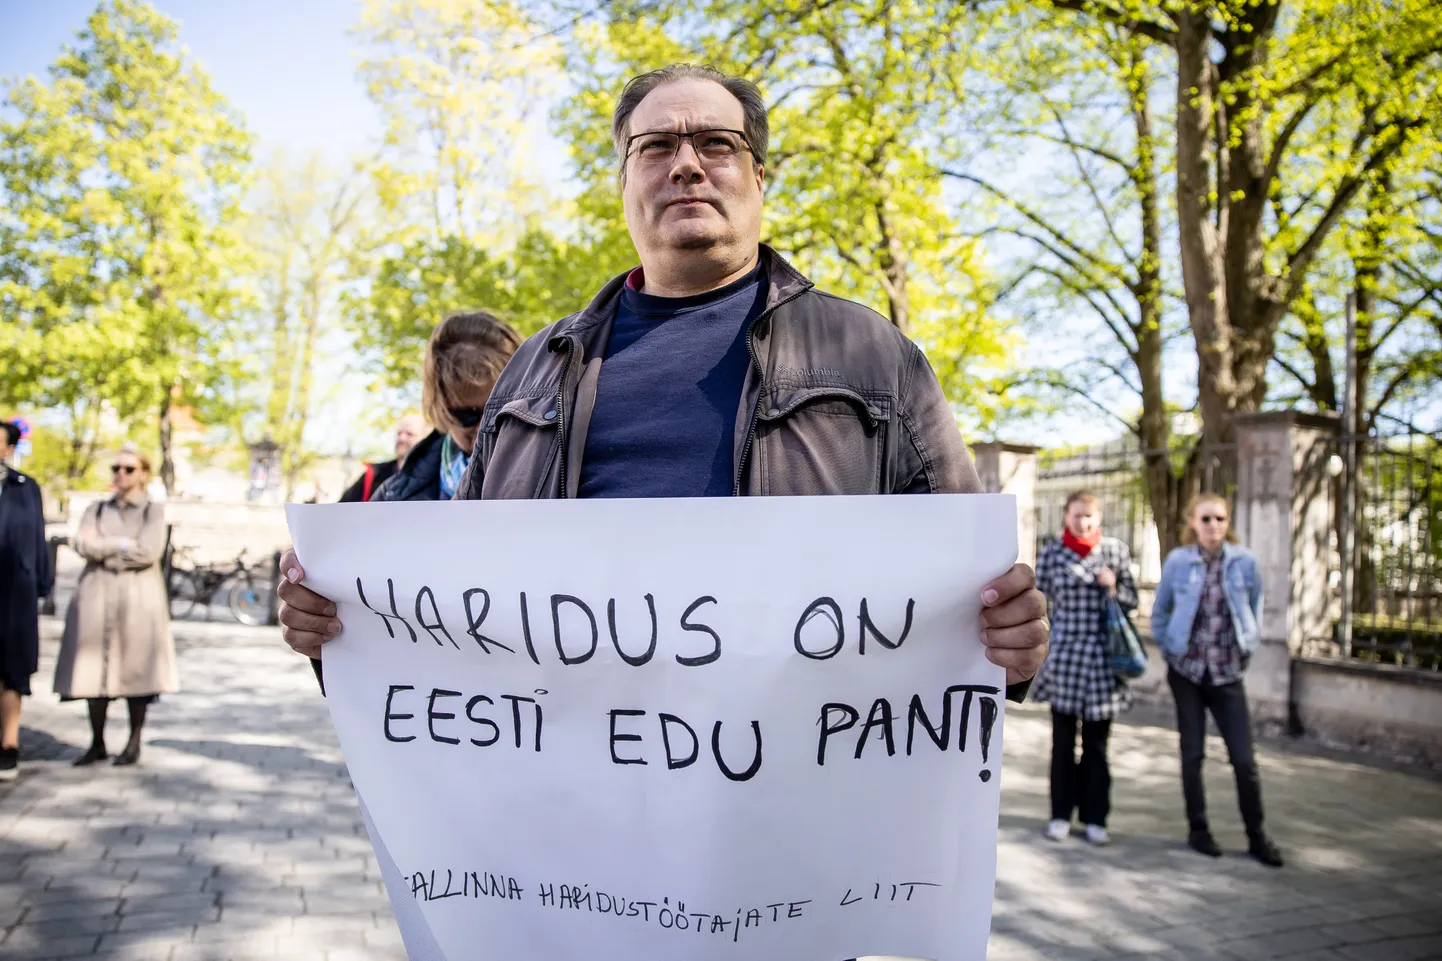 Columbia
HARIDUS ON
EESTI EDU PANT!
TALLINNA HARIDUSTÖÖTAJATE LIIT